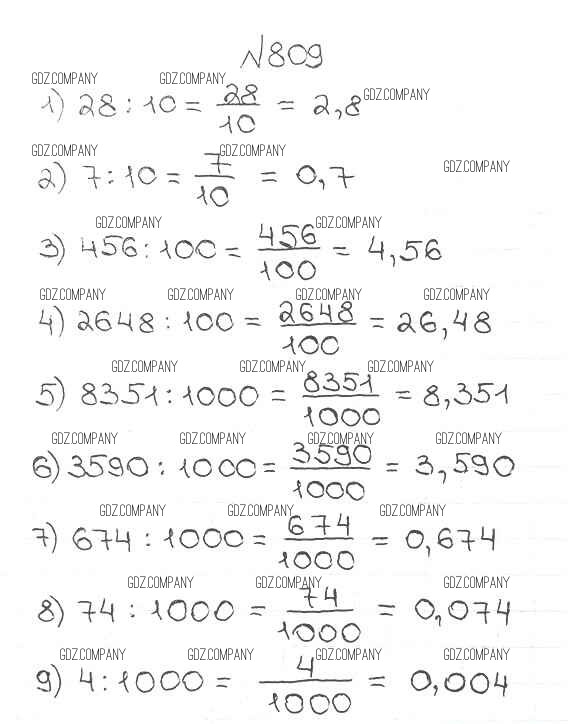 №809
GDZ.COMPANY GDZ.COMPANY GDZ.COMPANY
1) 28 : 10 = 28/10 = 2,8
GDZ.COMPANY GDZ.COMPANY GDZ.COMPANY
2) 7 : 10 = 7/10 = 0,7
GDZ.COMPANY GDZ.COMPANY
3) 456 : 100 = 456/100 = 4,56
GDZ.COMPANY GDZ.COMPANY GDZ.COMPANY GDZ.COMPANY
4) 2648 : 100 = 2648/100 = 26,48
GDZ.COMPANY GDZ.COMPANY GDZ.COMPANY
5) 8351 : 1000 = 8351/1000 = 8,351
GDZ.COMPANY GDZ.COMPANY GDZ.COMPANY GDZ.COMPANY
6) 3590 : 1000 = 3590/1000 = 3,590
GDZ.COMPANY GDZ.COMPANY GDZ.COMPANY
7) 674 : 1000 = 674/1000 = 0,674
GDZ.COMPANY GDZ.COMPANY GDZ.COMPANY
8) 74 : 1000 = 74/1000 = 0,074
GDZ.COMPANY GDZ.COMPANY GDZ.COMPANY GDZ.COMPANY
9) 4 : 1000 = 4/1000 = 0,004